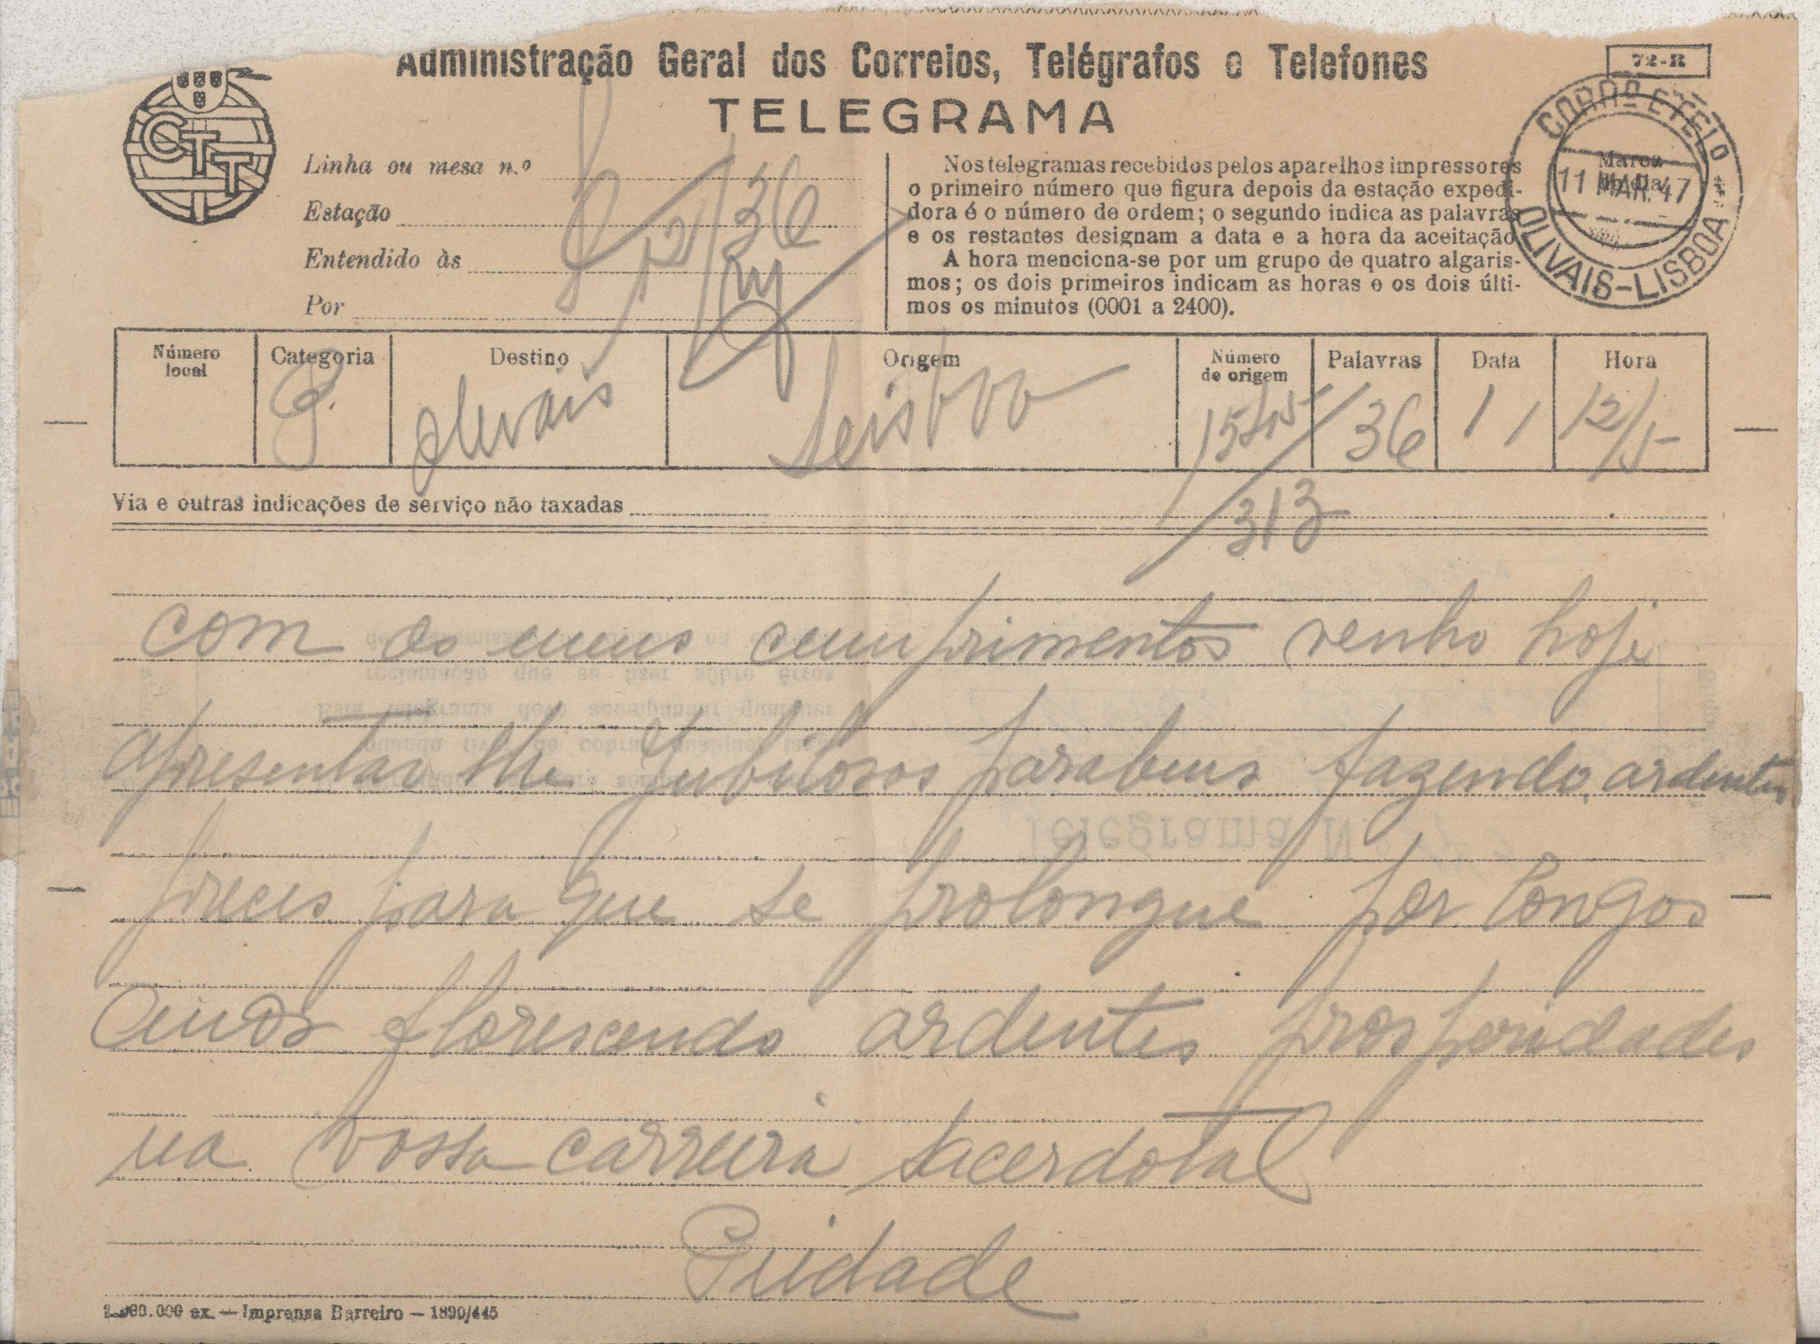 Administração Geral dos Correios, Telégrafos e Telefones
72-R
TELEGRAMA
CTT
Linha ou mesa n.º
Estação
Entendido às
Por
12/36
Nos telegramas recebidos pelos aparelhos impressores
o primeiro número que figura depois da estação expedi-
dora é o número de ordem; o segundo indica as palavras
e os restantes designam a data e a hora da aceitação
A hora menciona-se por um grupo de quatro algaris-
mos; os dois primeiros indicam as horas e os dois últi-
mos os minutos (0001 a 2400).
CORRO E TELO
Marca do dia
11 MAR. 47
OLIVAIS-LISBOA
Número local Categoria Destino Origem Número de origem Palavras Data Hora
P. Olivais Lisboa 15515 36 11 12/5
313
Via e outras indicações de serviço não taxadas
com os meus cumprimentos venho hoje
apresentar lhe Jubilosos parabens fazendo ardentes
preces para que se prolongue por longos
anos florescendo ardentes prosperidades
na vossa carreira sacerdotal
Piedade
000.000 ex. — Imprensa Barreiro — 1890/445